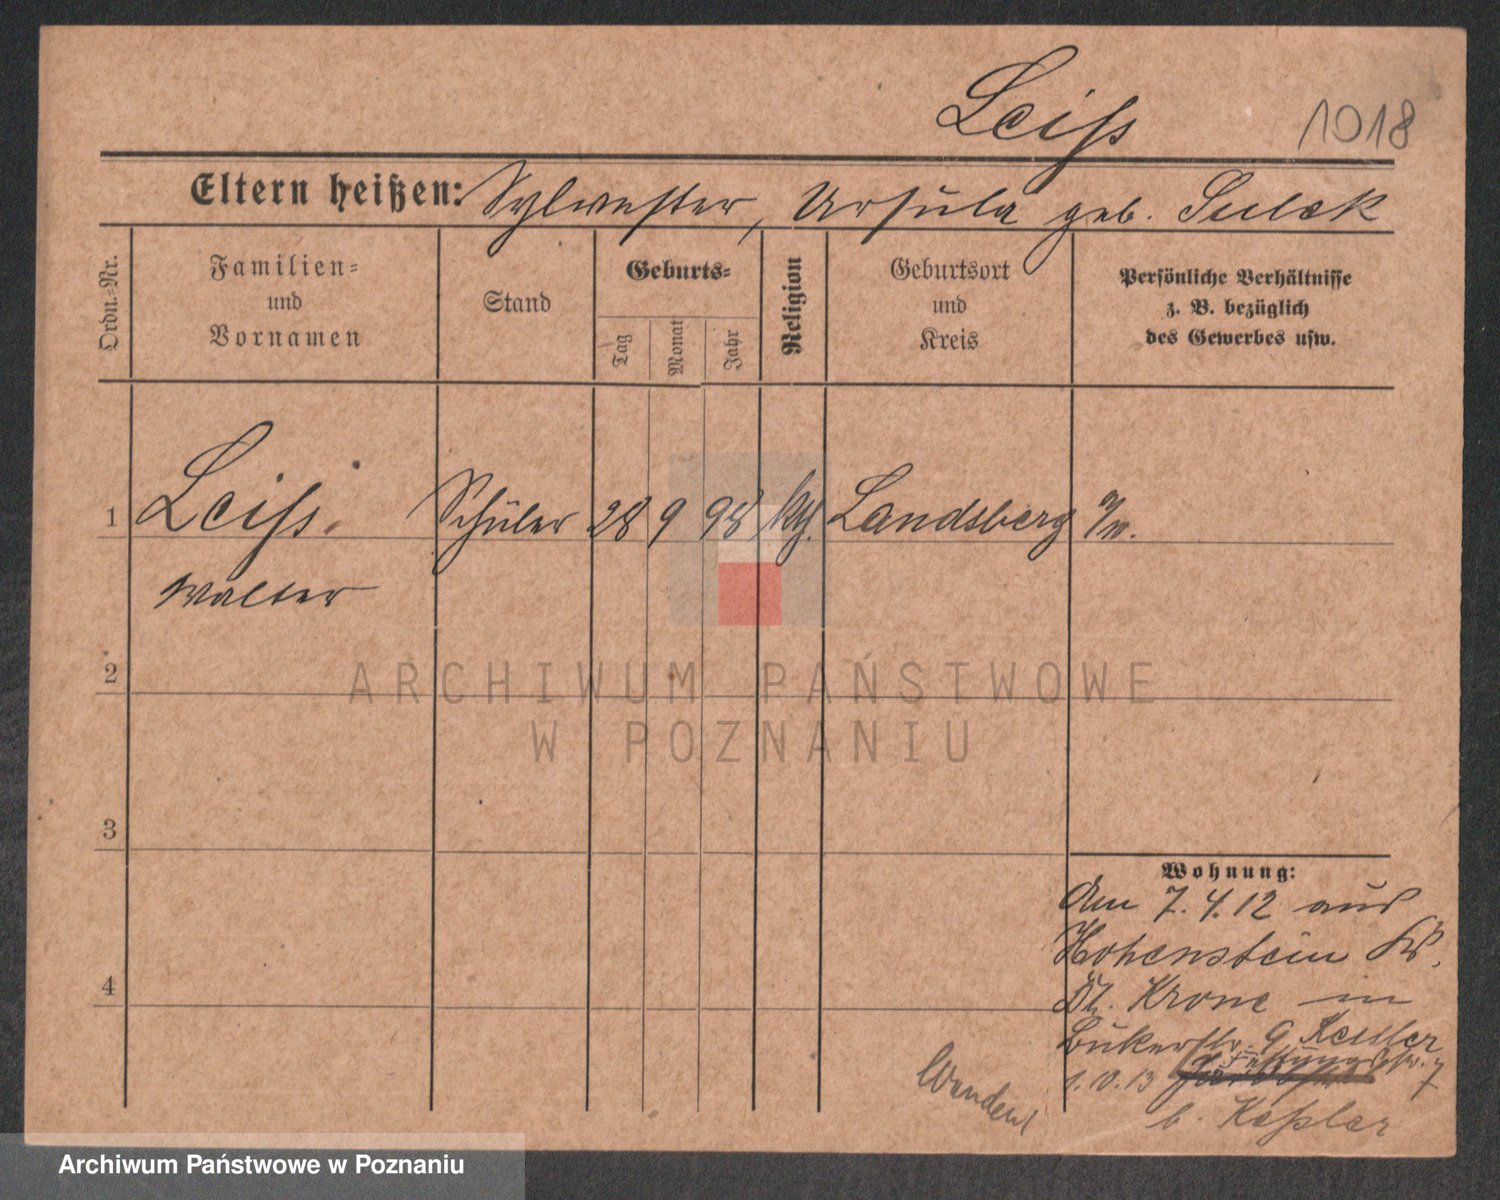 Leiss
1018
Eltern heißen: Sylvester, Ursula geb. Sulek
Ordn.-Nr.
Familien-
und
Vornamen
Stand
Geburts-
Tag
Monat
Jahr
Religion
Geburtsort
und
Kreis
Persönliche Verhältnisse
z. B. bezüglich
des Gewerbes usw.
1 Leiss. Schüler 28 9 98 kth. Landsberg a/W.
Walter
2
ARCHIWUM PAŃSTWOWE
W POZNANIU
3
Wohnung:
Am 7.4.12 aus
Hohenstein Kr.
4
Dt. Krone in
Bukerstr. 9 Kessler
1.10.13 7
b. Keßler
Wenden!
Archiwum Państwowe w Poznaniu